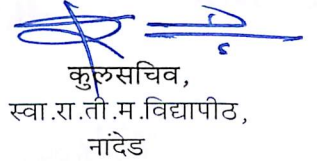 कुलसचिव,
स्वा.रा.ती.म.विद्यापीठ,
नांदेड